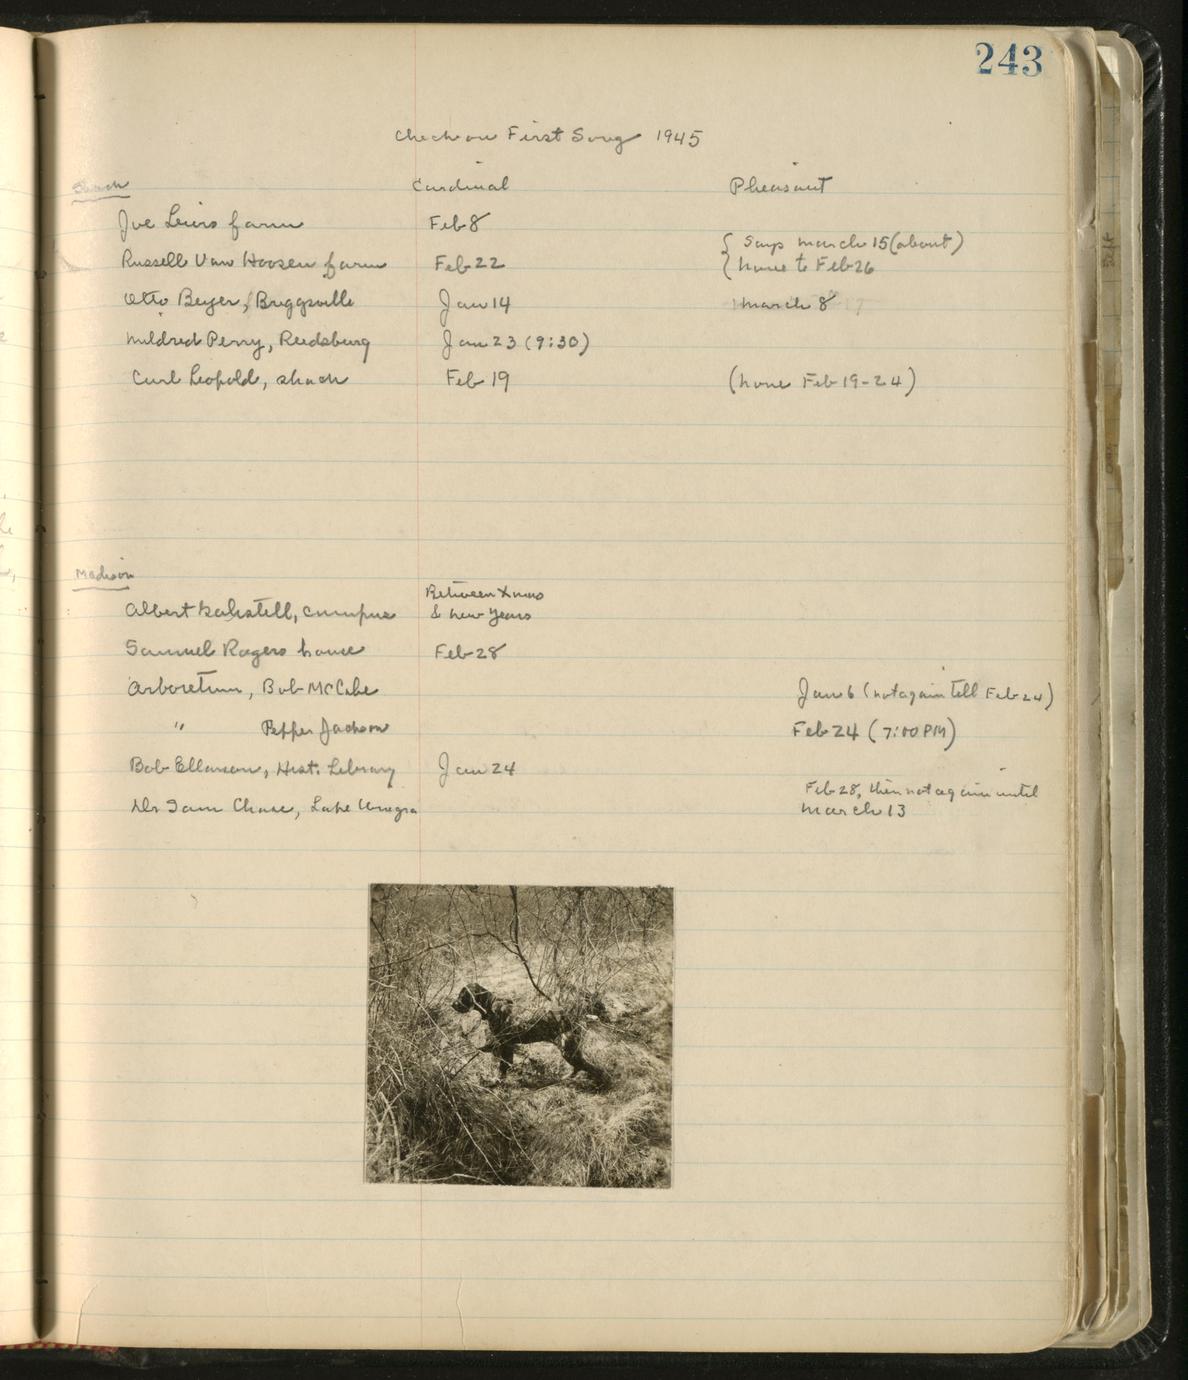 243
Check on First Song 1945
Shack Cardinal Pheasant
Joe Leirs farm Feb 8
{ Says March 15 (about)
Russell Van Hoosen farm Feb 22 { none to Feb 26
Otto Beyer, Briggsville Jan 14 March 8
Mildred Perry, Reedsburg Jan 23 (9:30)
Carl Leopold, shack Feb 19 (none Feb 19-24)
Madison
Between Xmas
Albert campus & New Years
Samuel Rogers house Feb 28
Arboretum, Bob McCabe Jan 6 (not again till Feb 24)
" Pepper Jackson Feb 24 (7:00 PM)
Bob Ellarson, Hist. Library Jan 24
Feb 28, then not again until
Dr Sam Chase, Lake Wingra March 13